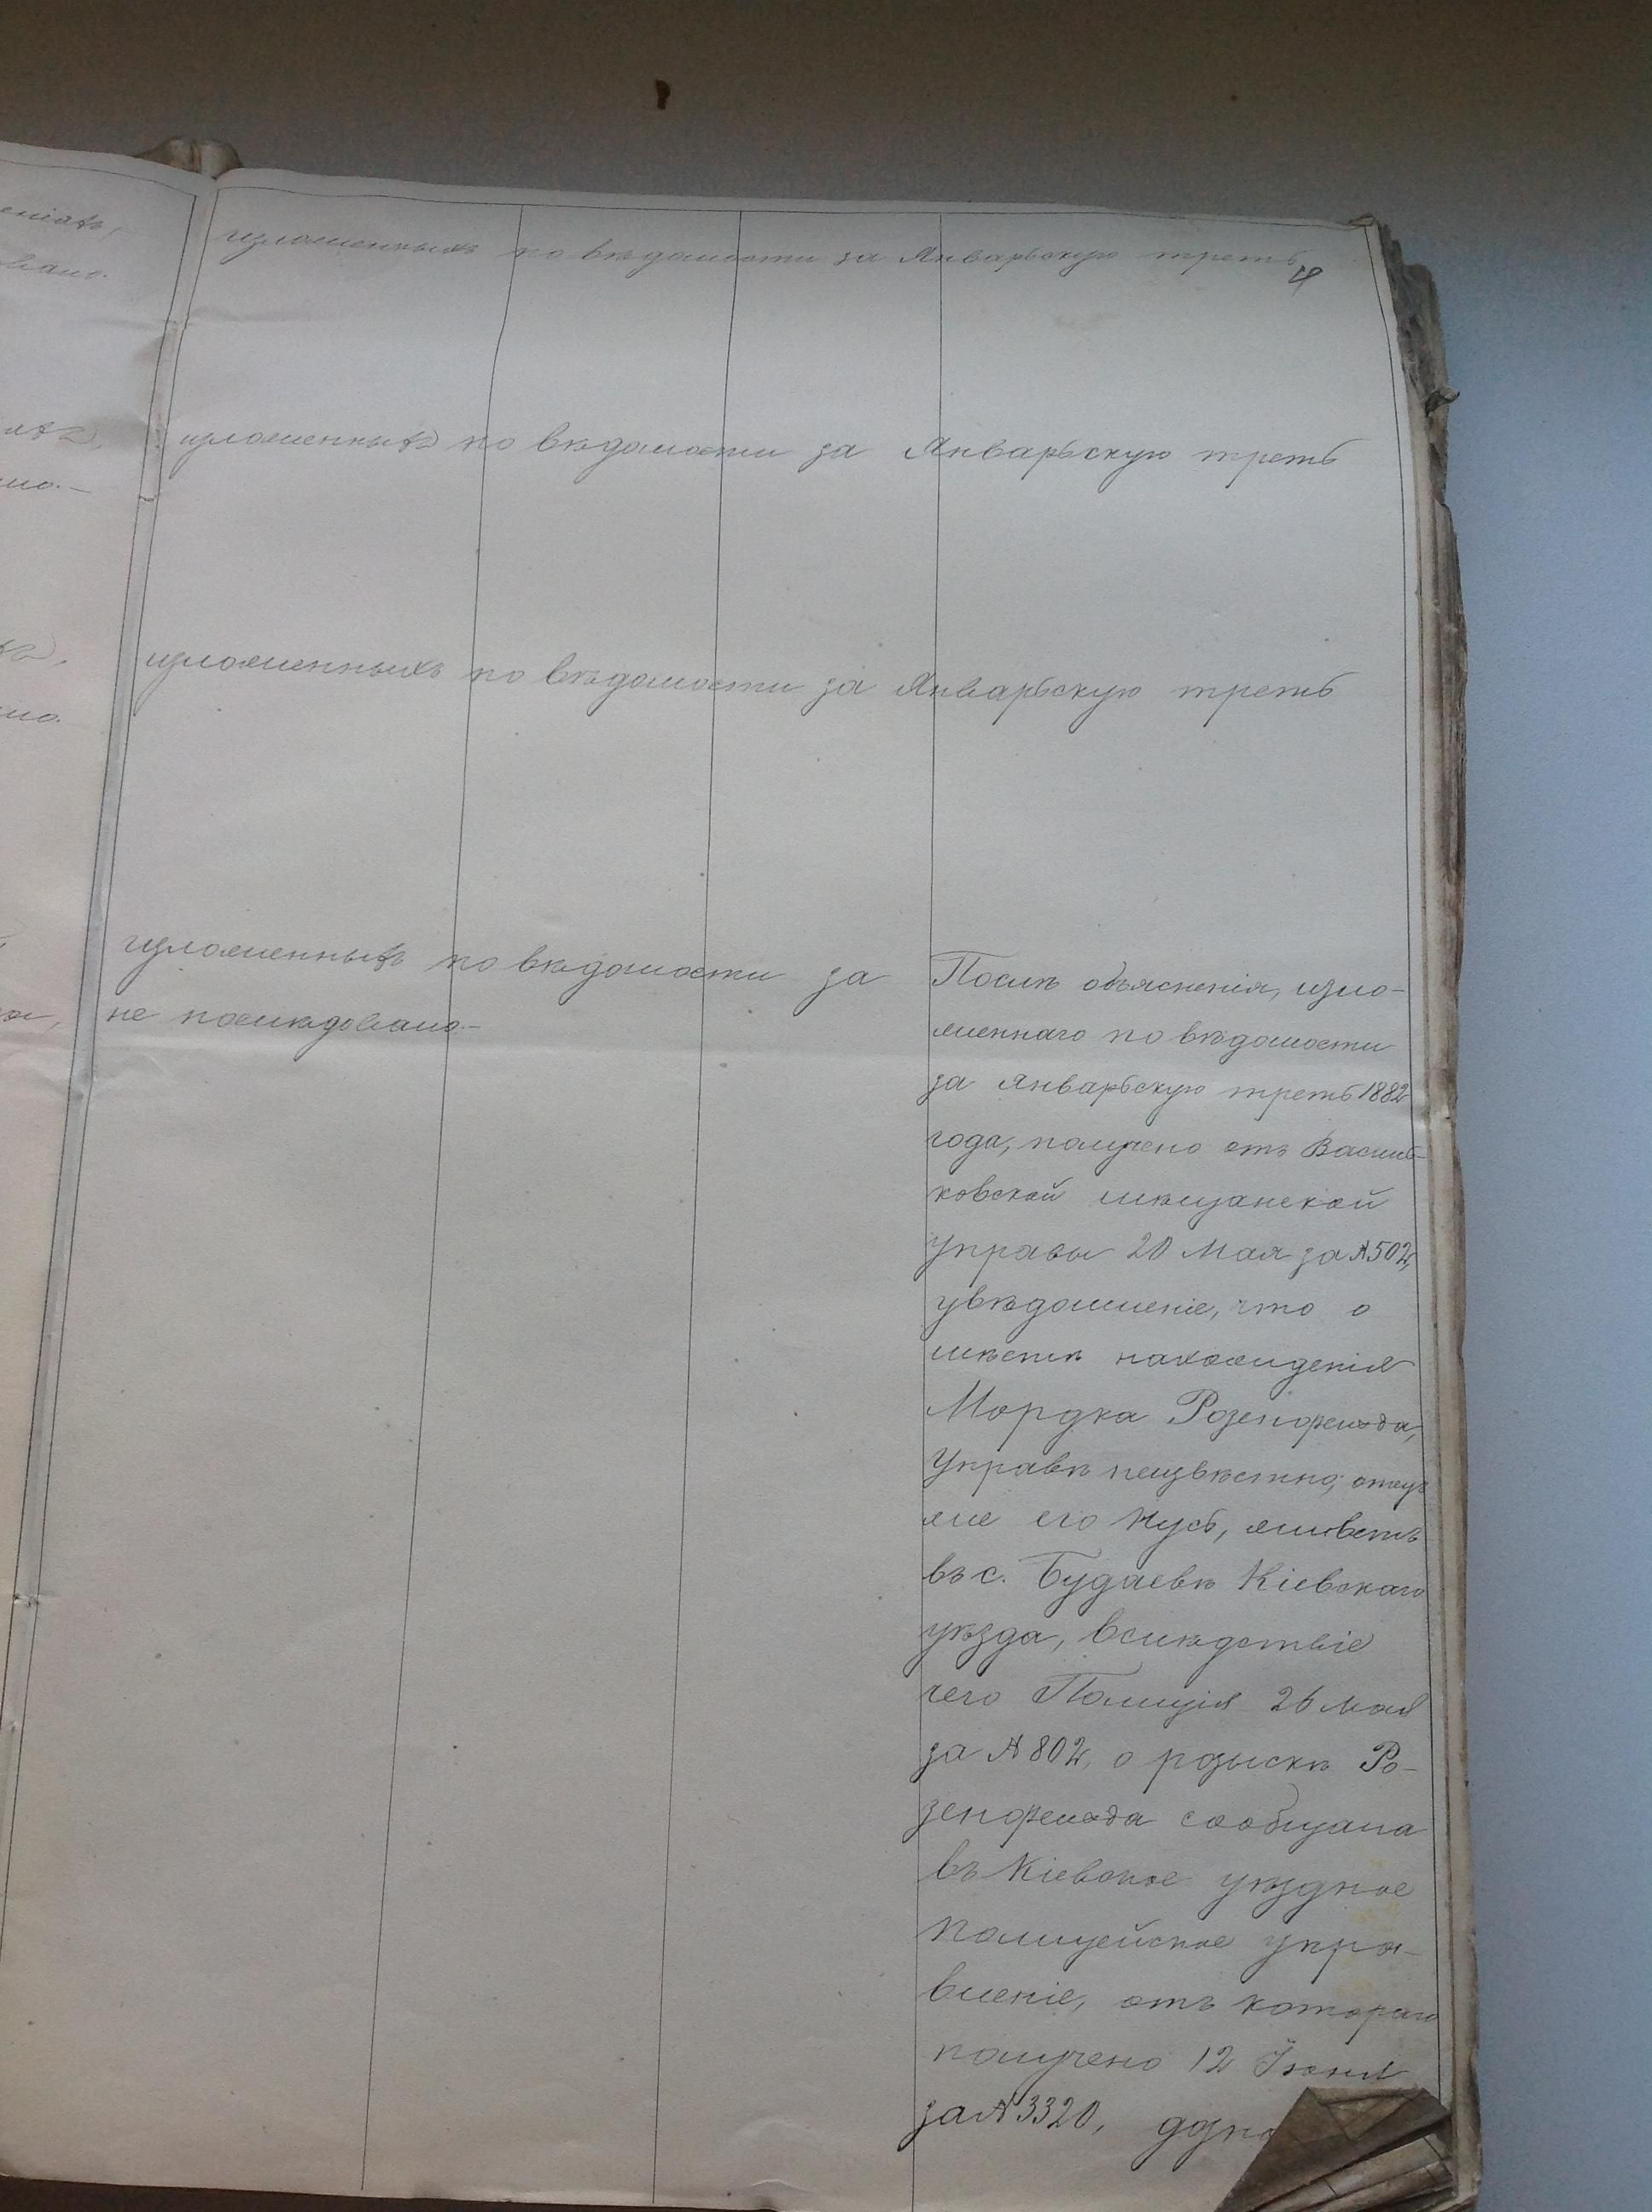 еніяхъ,
вано.
изложенныхъ по вѣдомости за Январьскую треть
4
яхъ,
но.—
изложенныхъ по вѣдомости за Январьскую треть
хъ,
но.
изложенныхъ по вѣдомости за Январьскую треть
изложенныхъ по вѣдомости за
не послѣдовало.—
Послѣ объясненія, изло-
женнаго по вѣдомости
за Январьскую треть 1882
года, получено отъ Василь-
ковской мѣщанской
управы 20 Мая за № 502,
увѣдомленіе, что о
мѣстѣ нахожденія
Мордка Розенфельда,
Управѣ неизвѣстно; отецъ
же его Нусь, живетъ
въ с. Будаевкѣ Кіевскаго
уѣзда, вслѣдствіе
чего Полиція 26 Мая
за № 802, о розыскѣ Ро-
зенфельда сообщала
въ Кіевское уѣздное
Полицейское упра-
вленіе, отъ котораго
получено 12 Іюня
за № 3320, дозна